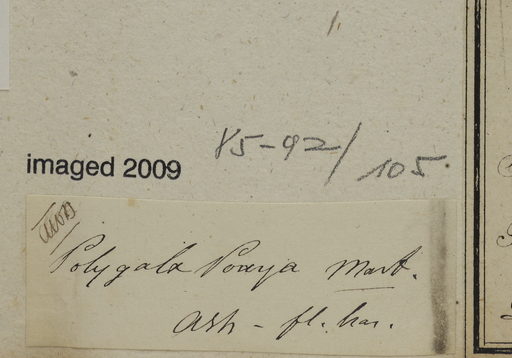 85-92/105
imaged 2009
Polygala Poaya Mart.
Ash - fl. har.